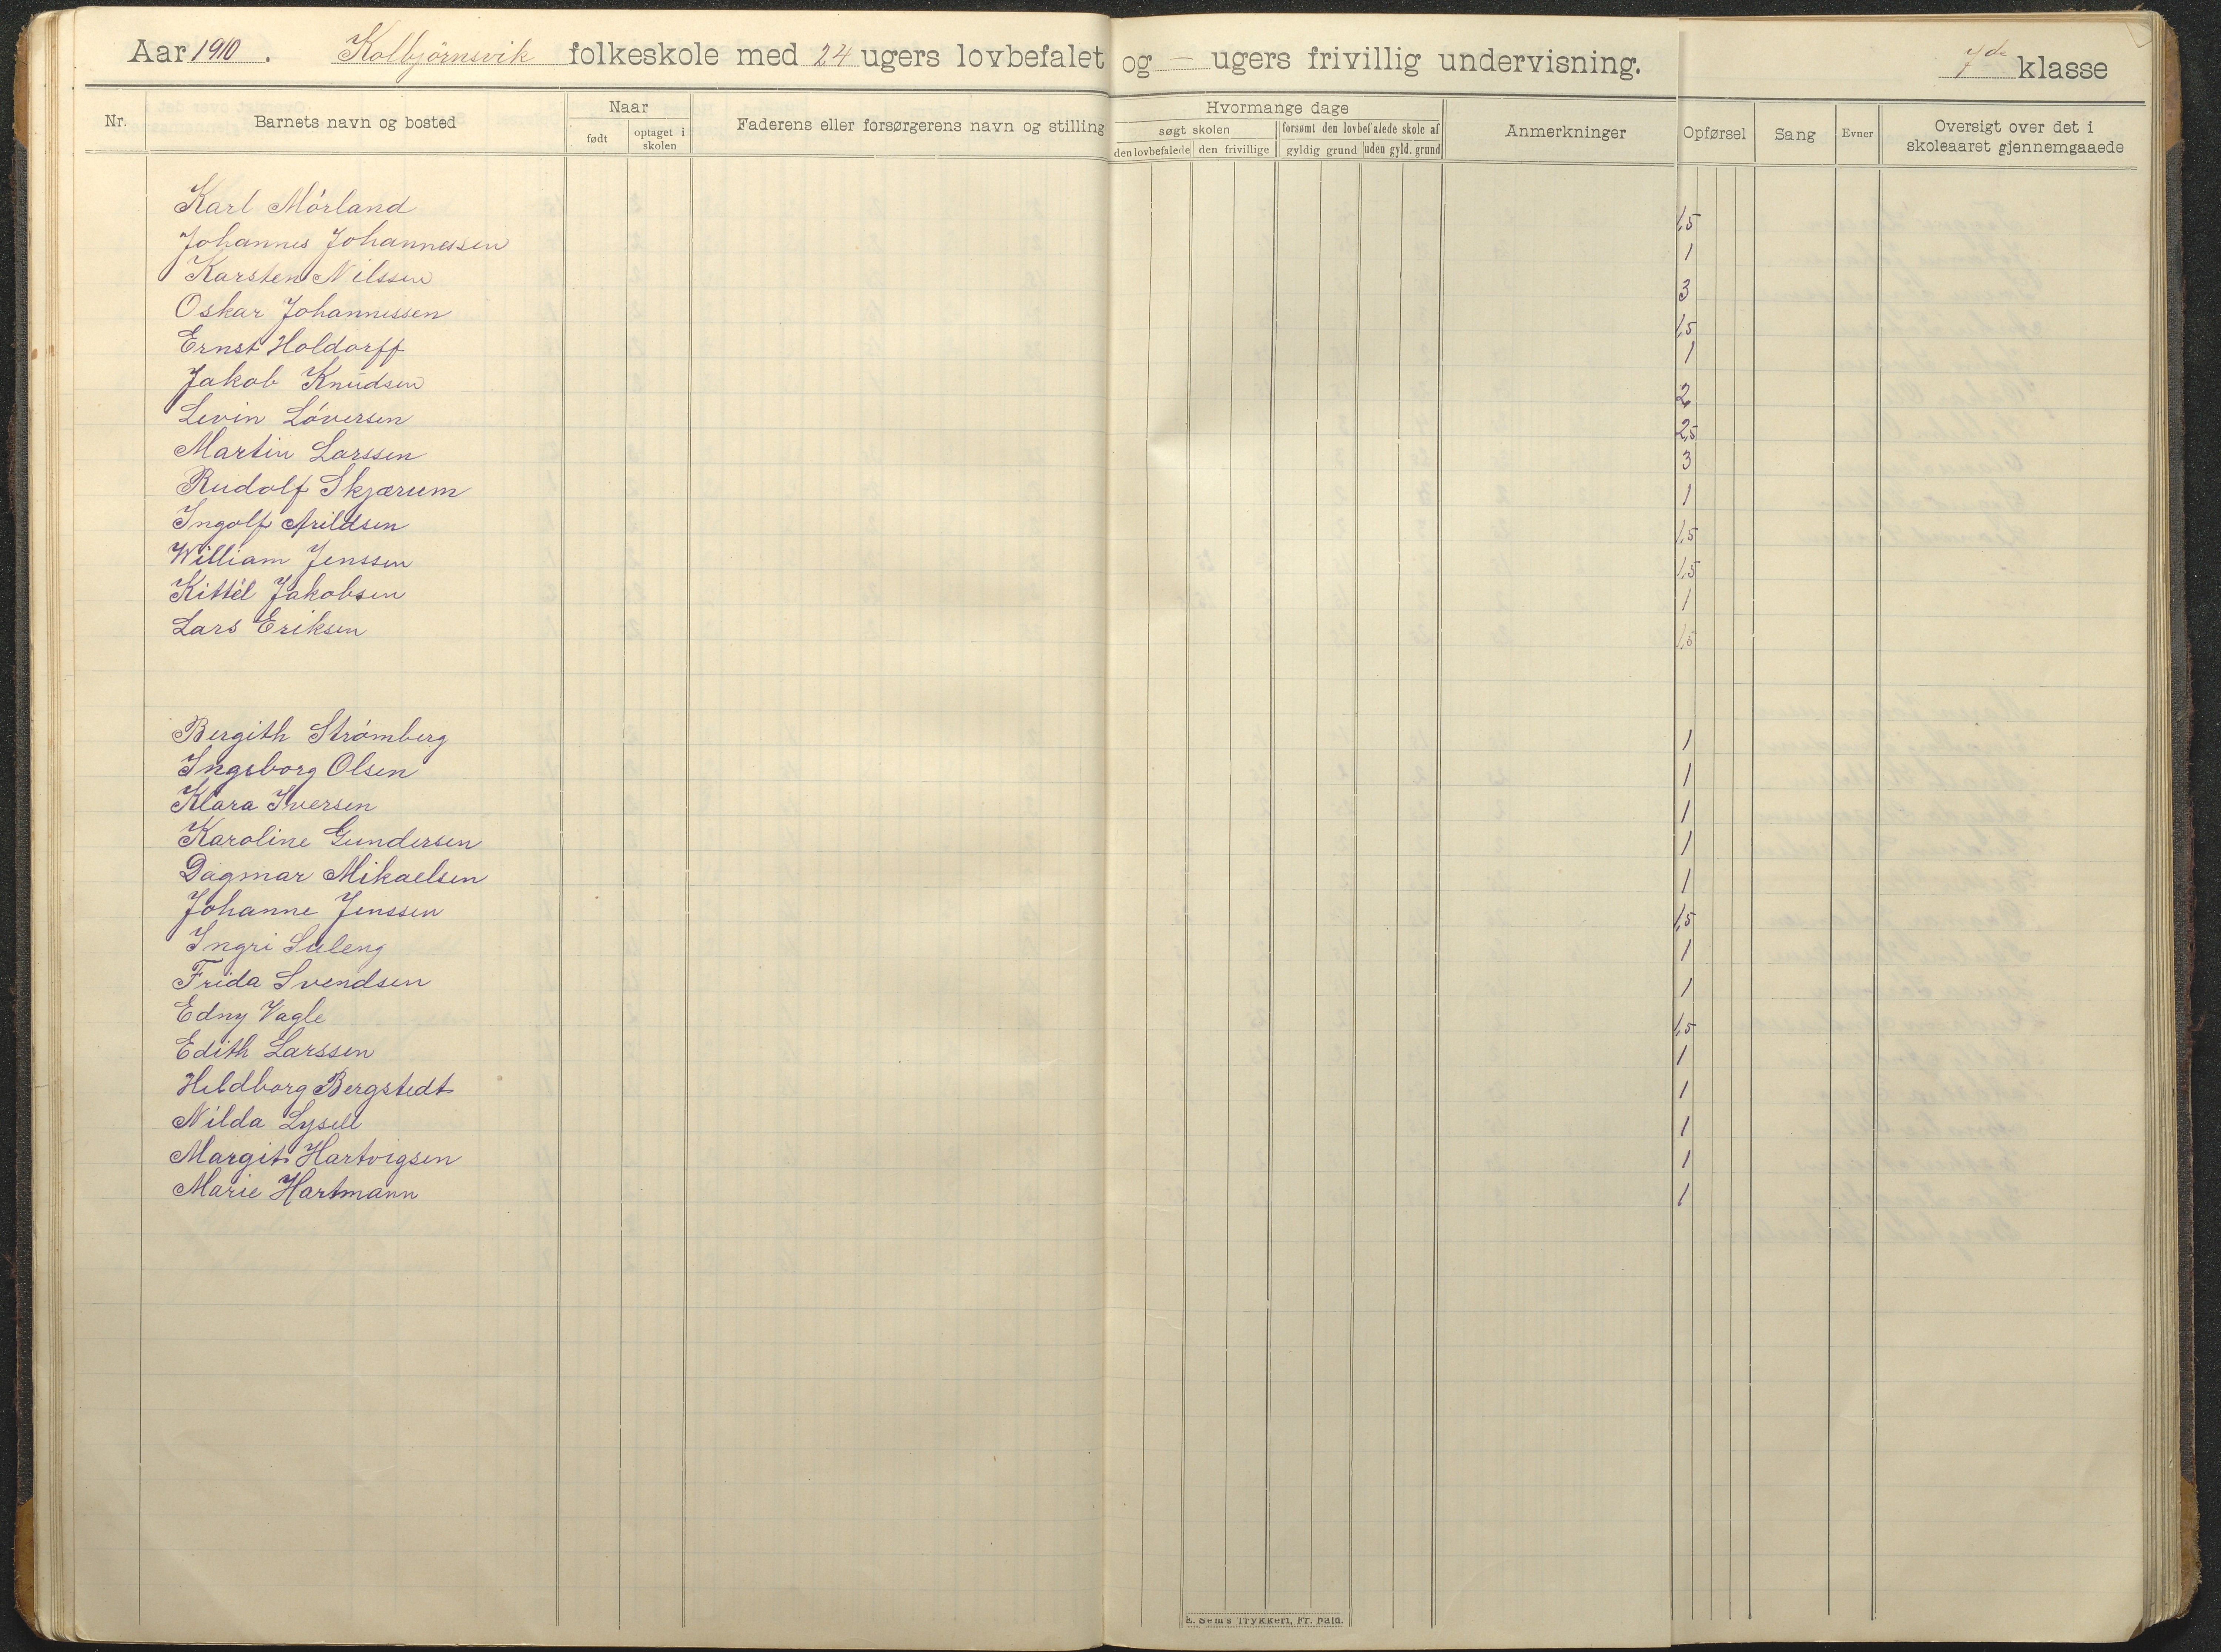 Aar 1910. Kolbjörnsvik folkeskole med 24 ugers lovbefalet og — ugers frivillig undervisning. 7de klasse
Nr. Barnets navn og bosted Naar født optaget i skolen Faderens eller forsørgerens navn og stilling Hvormange dage søgt skolen den lovbefalede den frivillige forsømt den lovbefalede skole af gyldig grund uden gyld. grund Anmerkninger Opførsel Sang Evner Oversigt over det i skoleaaret gjennemgaaede
Karl Mörland 1,5
Johannes Johannessen 1
Karsten Nilssen 3
Oskar Johannessen 1,5
Ernst Holdorff 1
Jakob Knudsen 2
Levin Löversen 2,5
Martin Larssen 3
Rudolf Skjærum 1
Ingolf Arildsen 1,5
William Jenssen 1,5
Kittel Jakobsen 1
Lars Eriksen 1,5
Bergith Strömberg 1
Ingeborg Olsen 1
Klara Iversen 1
Karoline Gundersen 1
Dagmar Mikaelsen 1
Johanne Jenssen 1,5
Ingri Suleng 1
Frida Svendsen 1
Edny Vagle 1,5
Edith Larssen 1
Hildborg Bergstedt 1
Nilda Lysell 1
Margit Hartvigsen 1
Marie Hartmann 1
E. Sems Trykkeri, Fr. hald.